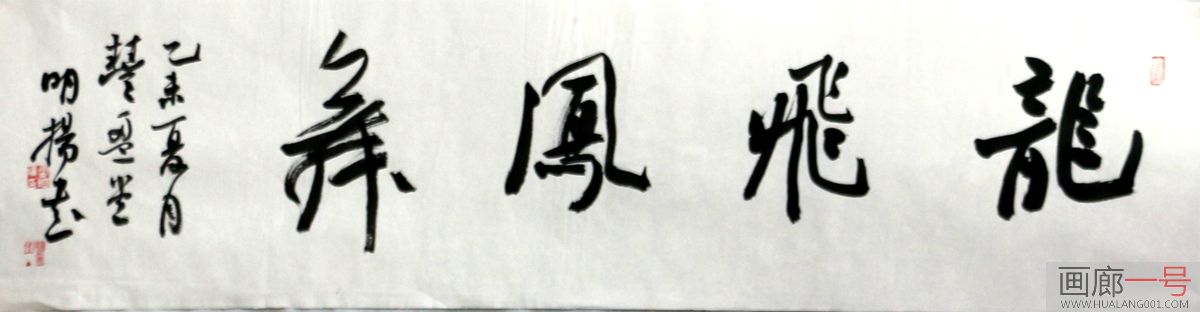 龍飛鳳舞
乙未夏月
豐盈堂
明揚書
画廊一号
WWW.HUALANG001.COM